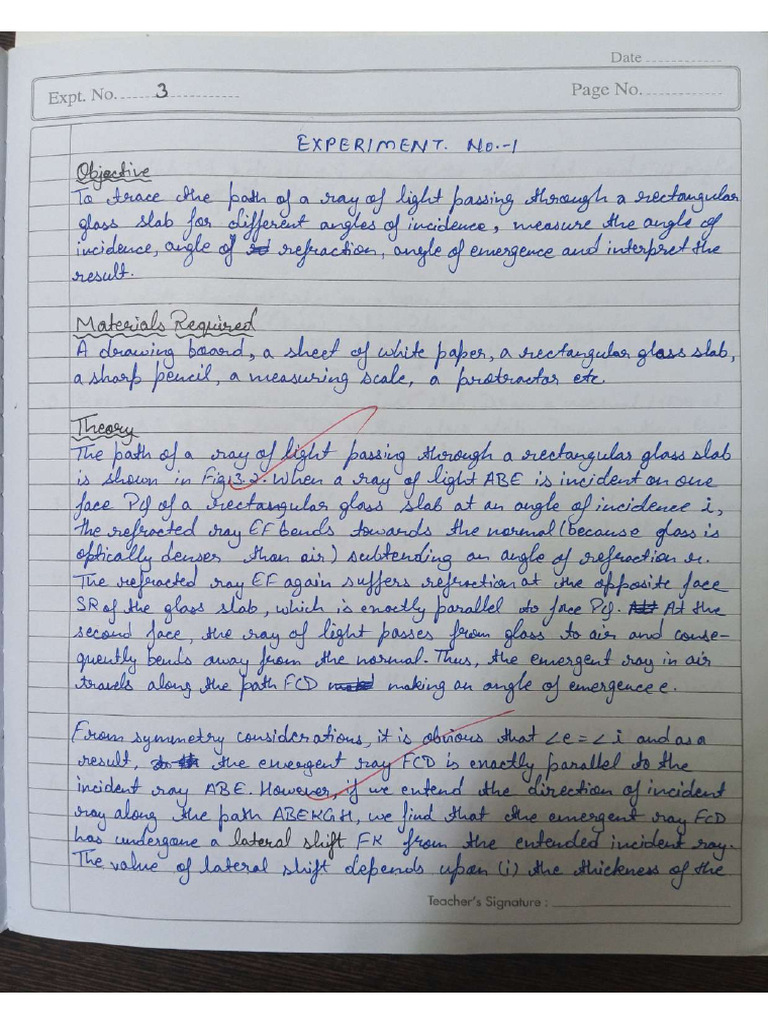 Date ............
Expt. No. ...... 3 ............
Page No. ............
EXPERIMENT. No.-1
Objective
To trace the path of a ray of light passing through a rectangular
glass slab for different angles of incidence, measure the angle of
incidence, angle of refraction, angle of emergence and interpret the
result.
Materials Required
A drawing board, a sheet of white paper, a rectangular glass slab,
a sharp pencil, a measuring scale, a protractor etc.
Theory
The path of a ray of light passing through a rectangular glass slab
is shown in Fig. 3.2. When a ray of light ABE is incident on one
face PQ of a rectangular glass slab at an angle of incidence i,
the refracted ray EF bends towards the normal (because glass is
optically denser than air) subtending an angle of refraction r.
The refracted ray EF again suffers refraction at the opposite face
SR of the glass slab, which is exactly parallel to face PQ. At the
second face, the ray of light passes from glass to air and conse-
quently bends away from the normal. Thus, the emergent ray in air
travels along the path FCD making an angle of emergence e.
From symmetry considerations, it is obvious that ∠e = ∠i and as a
result, the emergent ray FCD is exactly parallel to the
incident ray ABE. However, if we extend the direction of incident
ray along the path ABEKGH, we find that the emergent ray FCD
has undergone a lateral shift FK from the extended incident ray.
The value of lateral shift depends upon (i) the thickness of the
Teacher's Signature : ____________